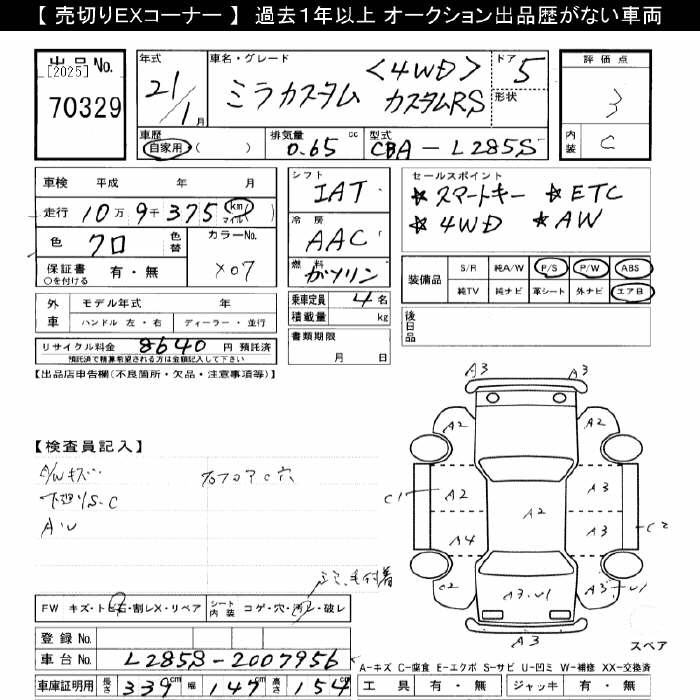 【 売切りEXコーナー 】 過去1年以上 オークション出品歴がない車両
出品No.
[2025]
70329
年式
21/1月
車名・グレード
<4WD>
ミラカスタム カスタムRS
ドア 5
形状
評価点
3
内装 C
車歴
自家用 ( )
排気量 cc
0.65
型式
CBA-L285S
車検 平成 年 月
走行 10万9千375 km マイル ( )
色 クロ 色替
カラーNo.
X07
保証書 有・無
○を付ける
シフト
IAT
冷房
AAC
燃料
ガソリン
乗車定員 4名
積載量 kg
セールスポイント
★スマートキー ★ETC
★4WD ★AW
装備品 S/R 純A/W P/S P/W ABS
純TV 純ナビ 革シート 外ナビ エアB
外車 モデル年式 年
ハンドル 左・右 ディーラー・並行
後日品
書類期限
月 日
リサイクル料金 8640 円 預託済
預託済で精算希望される方は金額記入して下さい
【出品店申告欄(不良箇所・欠品・注意事項等)】
【検査員記入】
A/Wキズ…
下廻りS.C
A.U
フロアC穴
A3 A3
A2 A2
C1 A2 A2 A3
A4 A3 C2
C2 A3.U1 A3 U1
A3
スペア
FW キズ・トビ石・割レX・リペア
シート内装 コゲ・穴・汚レ・破レ
登録No.
車台No. L285S-2007956
車庫証明用 長さ 339cm 幅 147cm 高さ 154cm
A-キズ C-腐食 E-エクボ S-サビ U-凹ミ W-補修 XX-交換済
工具 有・無 ジャッキ 有・無